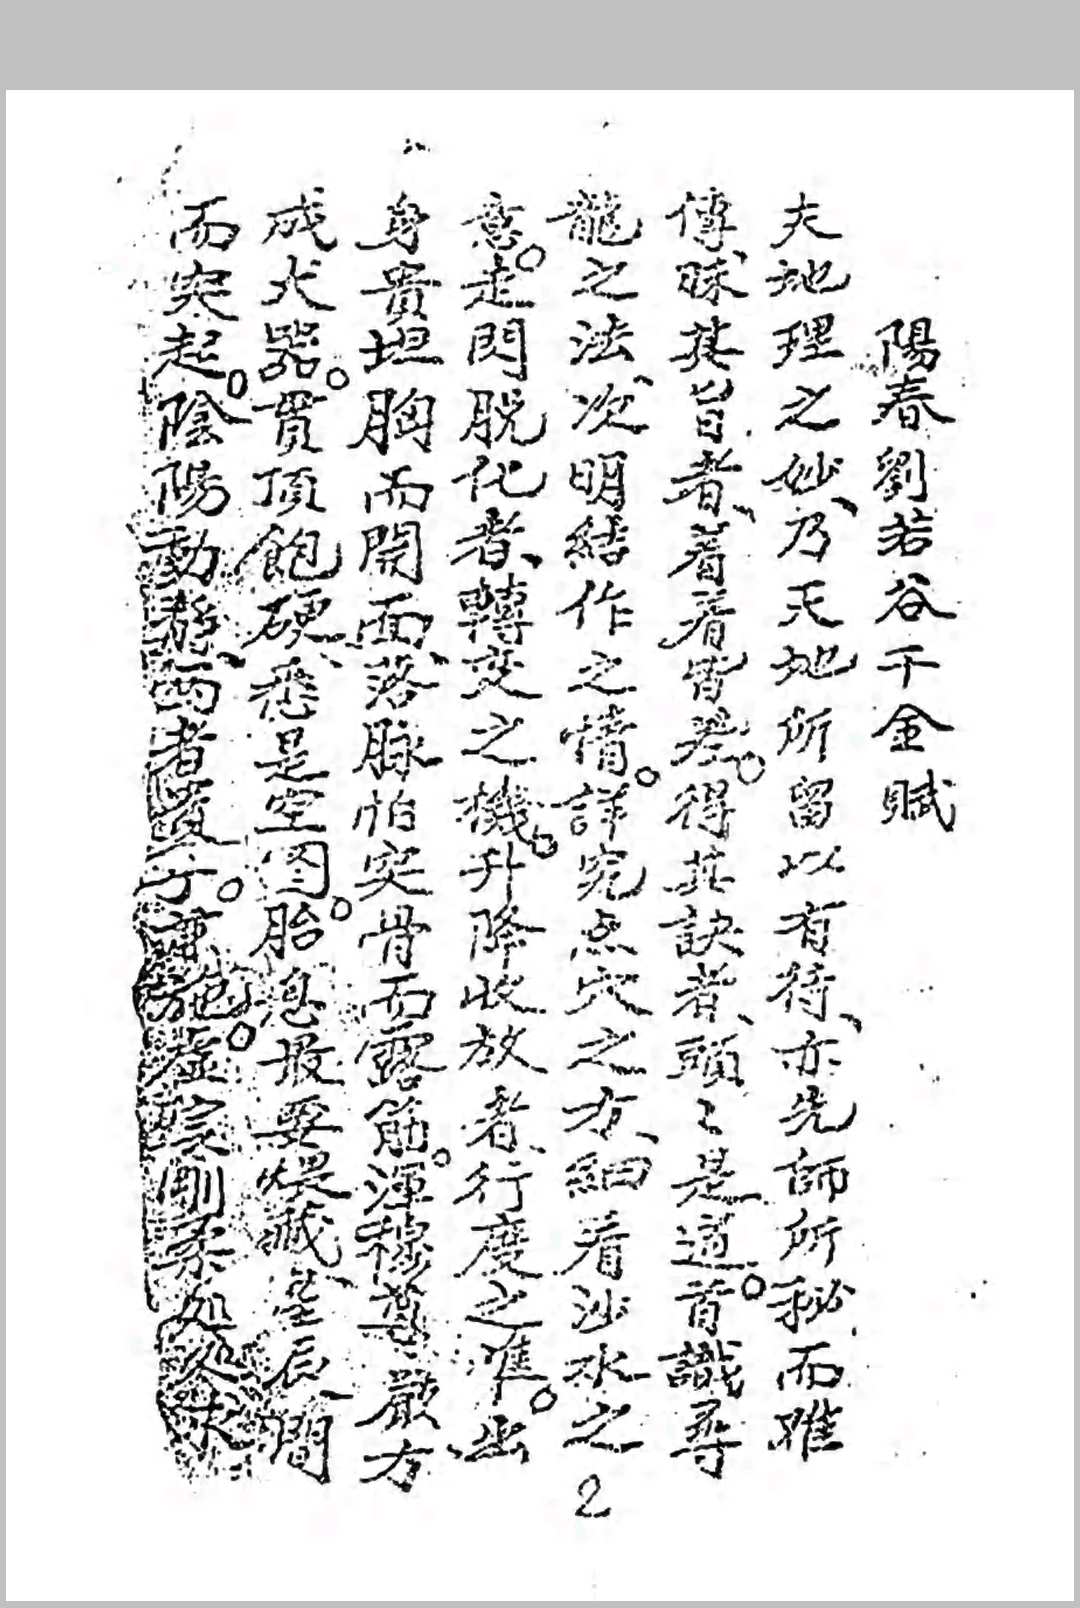 陽春劉若谷千金賦
夫地理之妙、乃天地所留以有待、亦先師所秘而难
傳、昧其旨者、着着皆差。得其訣者、頭〻是道。首識尋
龍之法、次明結作之情。詳究点穴之方、細看沙水之
意。走閃脱化者、轉变之機。升降收放者、行度之準。出
身貴坦胸而開面、落脉怕突骨而露筋。渾穆尊嚴、方
成大器。貫頂飽硬、悉是空图。胎息最要煨藏、星辰間
而突起。陰陽動静、两者
2